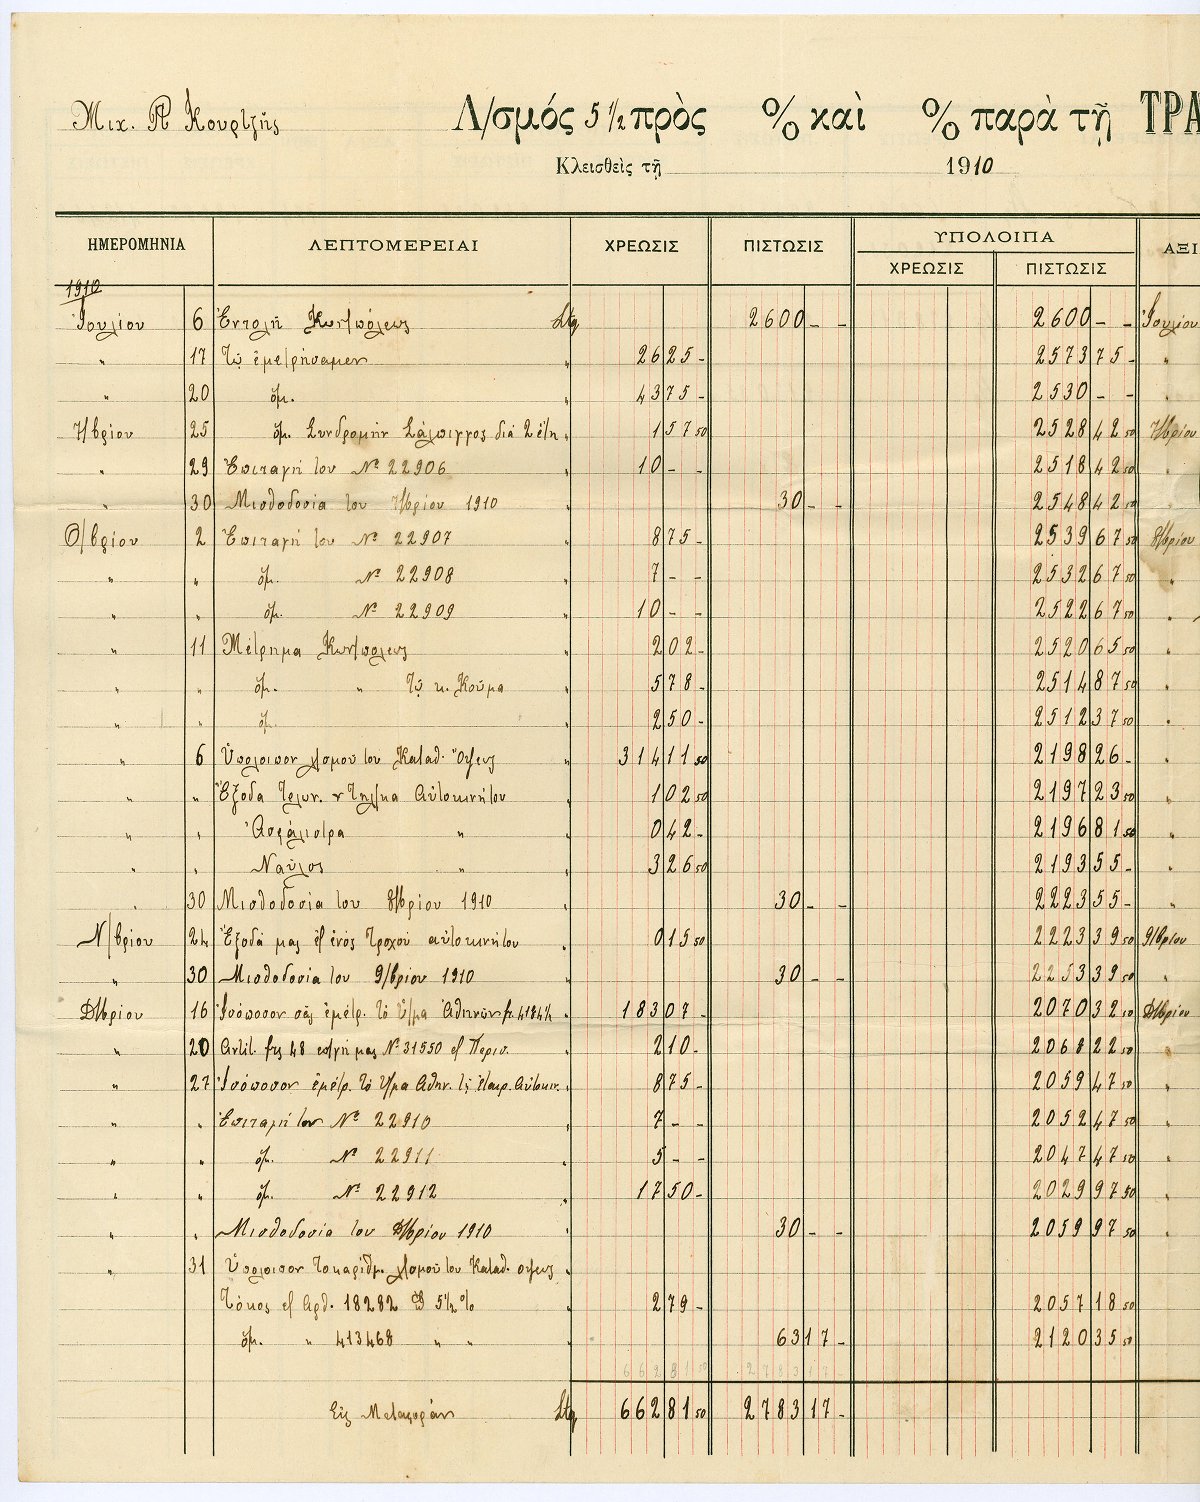 Μιχ. Π Κουρτζῆς
Λ/σμός 5 1/2 πρὸς % καὶ % παρὰ τῇ ΤΡΑ
Κλεισθεὶς τῇ 1910
ΗΜΕΡΟΜΗΝΙΑ ΛΕΠΤΟΜΕΡΕΙΑΙ ΧΡΕΩΣΙΣ ΠΙΣΤΩΣΙΣ ΥΠΟΛΟΙΠΑ ΑΞΙ
ΧΡΕΩΣΙΣ ΠΙΣΤΩΣΙΣ
1910
Ἰουλίου 6 Ἐντολῆ Κων/πόλεως Ltq 2600 – – 2600 – – Ἰουλίου
" 17 Τῷ ἐμετρήσαμεν " 26 25 – 2573 75 – "
" 20 ὅμ. " 43 75 – 2530 – – "
7/βρίου 25 ὅμ. Συνδρομὴν Σάλπιγγος διὰ 2 ἔτη " 1 57 50 2528 42 50 7/βρίου
" 29 Ἐπιταγή του Νο 22906 10 – – 2518 42 50 "
" 30 Μισθοδοσία του 7/βρίου 1910 " 30 – – 2548 42 50 "
Ο/βρίου 2 Ἐπιταγή του Νο 22907 " 8 75 – 2539 67 50 8/βρίου
" " ὅμ. Νο 22908 " 7 – – 2532 67 50 "
" " ὅμ. Νο 22909 " 10 – – 2522 67 50 "
" 11 Μέτρημα Κων/πόλεως " 2 02 – 2520 65 50 "
" " ὅμ. " Τῷ κ. Κούμα " 5 78 – 2514 87 50 "
" " ὅμ. " 2 50 – 2512 37 50 "
" 6 Ὑπόλοιπον λ/σμοῦ του Καταθ. Ὄψεως " 314 11 50 2198 26 – "
" " Ἔξοδα Τελων. Αὐτοκινήτου " 1 02 50 2197 23 50 "
" " Ἀσφάλιστρα " " 0 42 – 2196 81 50 "
" " Ναῦλος " " 3 26 50 2193 55 – "
" 30 Μισθοδοσία του 8/βρίου 1910 30 – – 2223 55 – "
Ν/βρίου 24 Ἔξοδά μας ἐξ ἑνὸς Τροχοῦ αὐτοκινήτου " 0 15 50 2223 39 50 9/βρίου
" 30 Μισθοδοσία του 9/βρίου 1910 " 30 – – 2253 39 50 "
Δ/βρίου 16 Ἰσόποσον σᾶς ἐμέτρ. τὸ Ὑ/μα Ἀθηνῶν " 183 07 – 2070 32 50 Δ/βρίου
" 20 Ἀντίτ. 48 μας Νο 31550 " 2 10 – 2068 22 50 "
" 27 Ἰσόποσον ἐμέτρ. τὸ Ὑ/μα Ἀθην. Ἑταιρ. Αὐτοκιν. " 8 75 – 2059 47 50 "
" " Ἐπιταγή του Νο 22910 " 7 – – 2052 47 50 "
" " ὅμ. Νο 22911 " 5 – – 2047 47 50 "
" " ὅμ. Νο 22912 " 17 50 – 2029 97 50 "
" " Μισθοδοσία του Δ/βρίου 1910 " 30 – – 2059 97 50 "
" 31 Ὑπόλοιπον Τοκαρίθμ. λ/σμοῦ του Καταθ. ὄψεως "
Τόκος ἐξ Ἀρθ. 18282 5 1/2 % " 2 79 – 2057 18 50
ὅμ. " 413468 " " " 63 17 – 2120 35 50
662 81 50 2783 17
Εἰς Μεταφοράν Ltq 662 81 50 2783 17 –